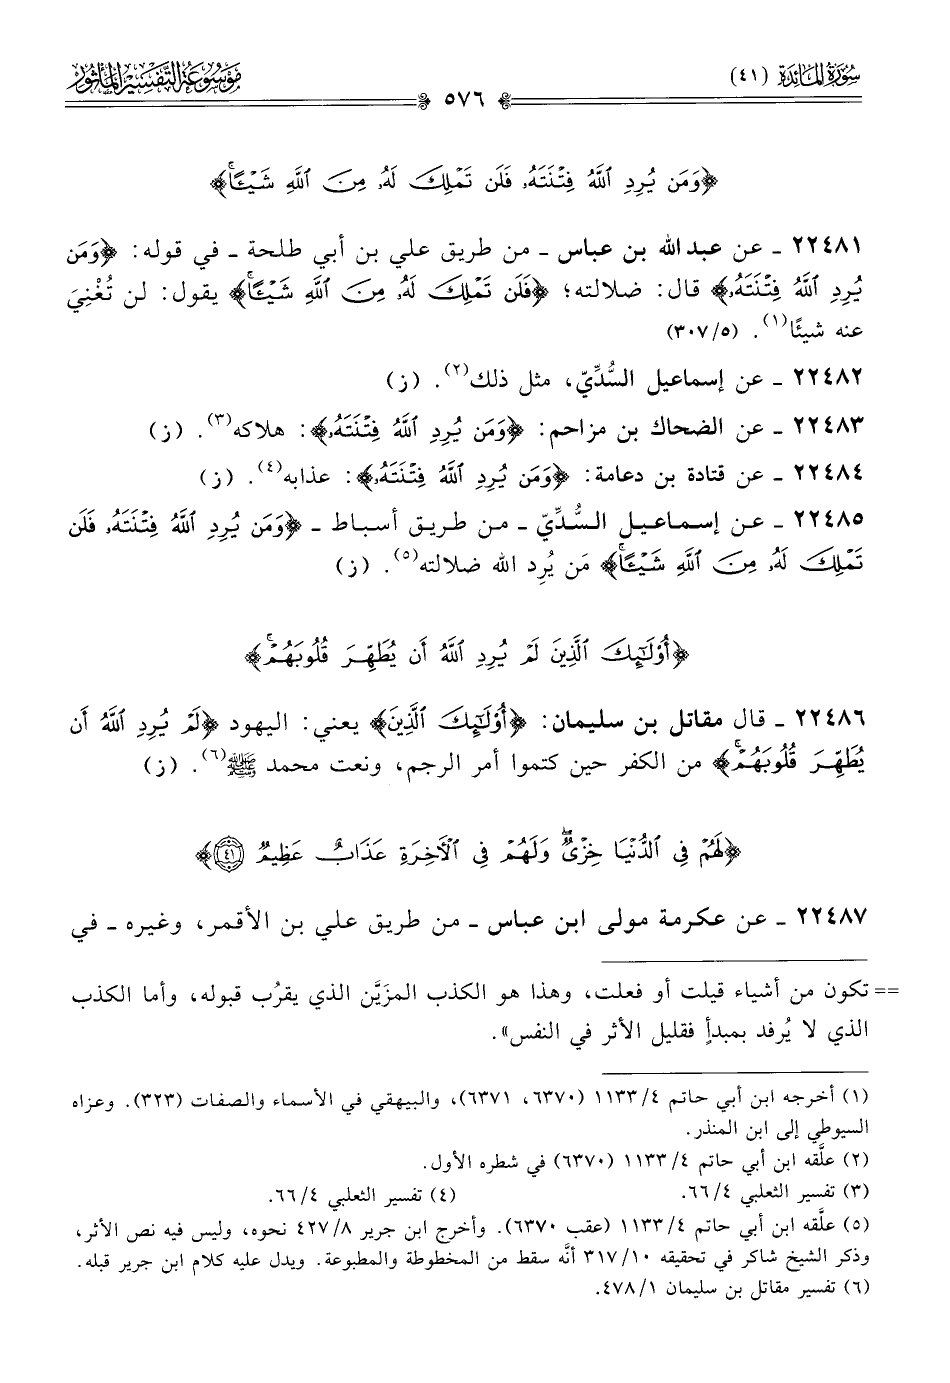 سُورَةُ المَائِدَة (٤١)
٥٧٦
مَوْسُوعَةُ التَّفْسِيرِ المَأْثُور
﴿وَمَن يُرِدِ ٱللَّهُ فِتْنَتَهُۥ فَلَن تَمْلِكَ لَهُۥ مِنَ ٱللَّهِ شَيْـًٔاۚ﴾
٢٢٤٨١ ـ عن عبد الله بن عباس ـ من طريق علي بن أبي طلحة ـ في قوله: ﴿وَمَن
يُرِدِ ٱللَّهُ فِتْنَتَهُۥ﴾ قال: ضلالته؛ ﴿فَلَن تَمْلِكَ لَهُۥ مِنَ ٱللَّهِ شَيْـًٔاۚ﴾ يقول: لن تُغْنِيَ
عنه شيئًا(١). (٣٠٧/٥)
٢٢٤٨٢ ـ عن إسماعيل السُّدِّيّ، مثل ذلك(٢). (ز)
٢٢٤٨٣ ـ عن الضحاك بن مزاحم: ﴿وَمَن يُرِدِ ٱللَّهُ فِتْنَتَهُۥ﴾: هلاكه(٣). (ز)
٢٢٤٨٤ ـ عن قتادة بن دعامة: ﴿وَمَن يُرِدِ ٱللَّهُ فِتْنَتَهُۥ﴾: عذابه(٤). (ز)
٢٢٤٨٥ ـ عن إسماعيل السُّدِّيّ ـ من طريق أسباط ـ ﴿وَمَن يُرِدِ ٱللَّهُ فِتْنَتَهُۥ فَلَن
تَمْلِكَ لَهُۥ مِنَ ٱللَّهِ شَيْـًٔاۚ﴾ مَن يُرِد الله ضلالته(٥). (ز)
﴿أُوْلَٰٓئِكَ ٱلَّذِينَ لَمْ يُرِدِ ٱللَّهُ أَن يُطَهِّرَ قُلُوبَهُمْۚ﴾
٢٢٤٨٦ ـ قال مقاتل بن سليمان: ﴿أُوْلَٰٓئِكَ ٱلَّذِينَ﴾ يعني: اليهود ﴿لَمْ يُرِدِ ٱللَّهُ أَن
يُطَهِّرَ قُلُوبَهُمْۚ﴾ من الكفر حين كتموا أمر الرجم، ونعت محمد ﷺ(٦). (ز)
﴿لَهُمْ فِى ٱلدُّنْيَا خِزْىٌۖ وَلَهُمْ فِى ٱلْأَخِرَةِ عَذَابٌ عَظِيمٌ ٤١﴾
٢٢٤٨٧ ـ عن عكرمة مولى ابن عباس ـ من طريق علي بن الأقمر، وغيره ـ في
== تكون من أشياء قيلت أو فعلت، وهذا هو الكذب المزيَّن الذي يقرُب قبوله، وأما الكذب
الذي لا يُرفد بمبدأٍ فقليل الأثر في النفس».
(١) أخرجه ابن أبي حاتم ١١٣٣/٤ (٦٣٧٠، ٦٣٧١)، والبيهقي في الأسماء والصفات (٣٢٣). وعزاه
السيوطي إلى ابن المنذر.
(٢) علَّقه ابن أبي حاتم ١١٣٣/٤ (٦٣٧٠) في شطره الأول.
(٣) تفسير الثعلبي ٦٦/٤. (٤) تفسير الثعلبي ٦٦/٤.
(٥) علَّقه ابن أبي حاتم ١١٣٣/٤ (عقب ٦٣٧٠). وأخرج ابن جرير ٤٢٧/٨ نحوه، وليس فيه نص الأثر،
وذكر الشيخ شاكر في تحقيقه ٣١٧/١٠ أنَّه سقط من المخطوطة والمطبوعة. ويدل عليه كلام ابن جرير قبله.
(٦) تفسير مقاتل بن سليمان ٤٧٨/١.